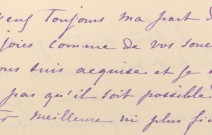 veux toujours ma part d
joies comme de vos souc
ous suis acquise et je n
pas qu'il soit possible
meilleure ni plus fid